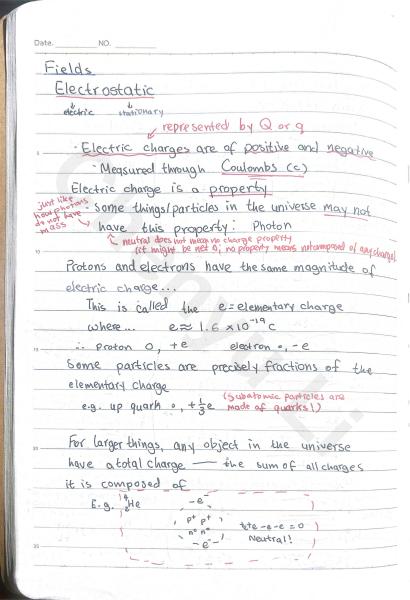 Date. NO.
Fields
Electrostatic
electric stationary
represented by Q or q
· Electric charges are of positive and negative
· Measured through Coulombs (c)
Electric charge is a property
just like
how photons
do not have
mass
· Some things/particles in the universe may not
have this property: Photon
neutral does not mean no charge property
(it might be net 0; no property means not composed of any charge)
Protons and electrons have the same magnitude of
electric charge...
This is called the e = elementary charge
where... e ≈ 1.6 × 10⁻¹⁹ C
∴ proton 0, +e electron 0, -e
Some particles are precisely fractions of the
elementary charge
e.g. up quark 0, +1/3 e
(Subatomic particles are
made of quarks!)
For larger things, any object in the universe
have a total charge — the sum of all charges
it is composed of
E.g. He
-e⁻
p⁺ p⁺
n° n°
-e⁻
+e+e-e-e=0
Neutral!